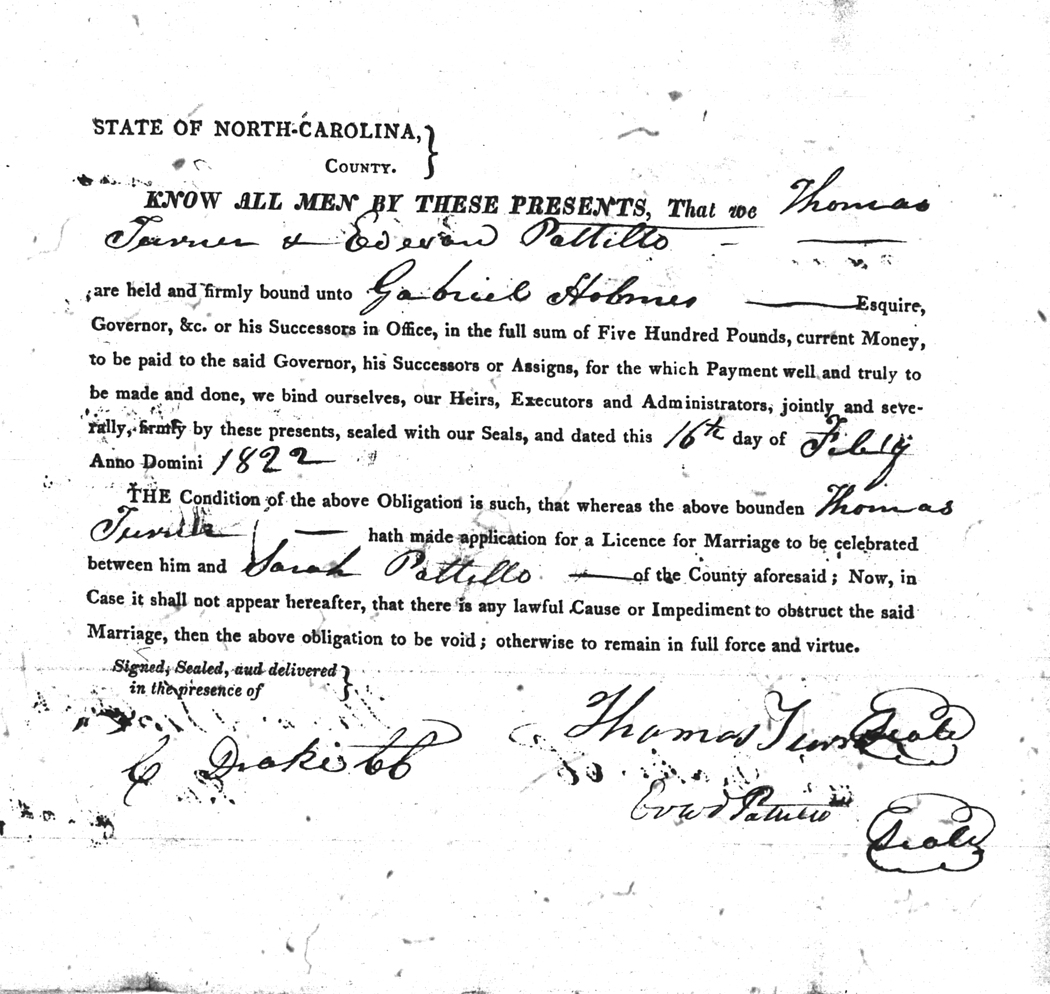 STATE OF NORTH-CAROLINA,
COUNTY.
KNOW ALL MEN BY THESE PRESENTS, That we Thomas
Turner & Edward Pattillo
are held and firmly bound unto Gabriel Holmes Esquire,
Governor, &c. or his Successors in Office, in the full sum of Five Hundred Pounds, current Money,
to be paid to the said Governor, his Successors or Assigns, for the which Payment well and truly to
be made and done, we bind ourselves, our Heirs, Executors and Administrators, jointly and seve-
rally, firmly by these presents, sealed with our Seals, and dated this 16th day of Feby
Anno Domini 1822
THE Condition of the above Obligation is such, that whereas the above bounden Thomas
Turner hath made application for a Licence for Marriage to be celebrated
between him and Sarah Pattillo of the County aforesaid; Now, in
Case it shall not appear hereafter, that there is any lawful Cause or Impediment to obstruct the said
Marriage, then the above obligation to be void; otherwise to remain in full force and virtue.
Signed, Sealed, aud delivered
in the presence of
Thomas Turner Seale
C Drake CC
Pattillo Seale